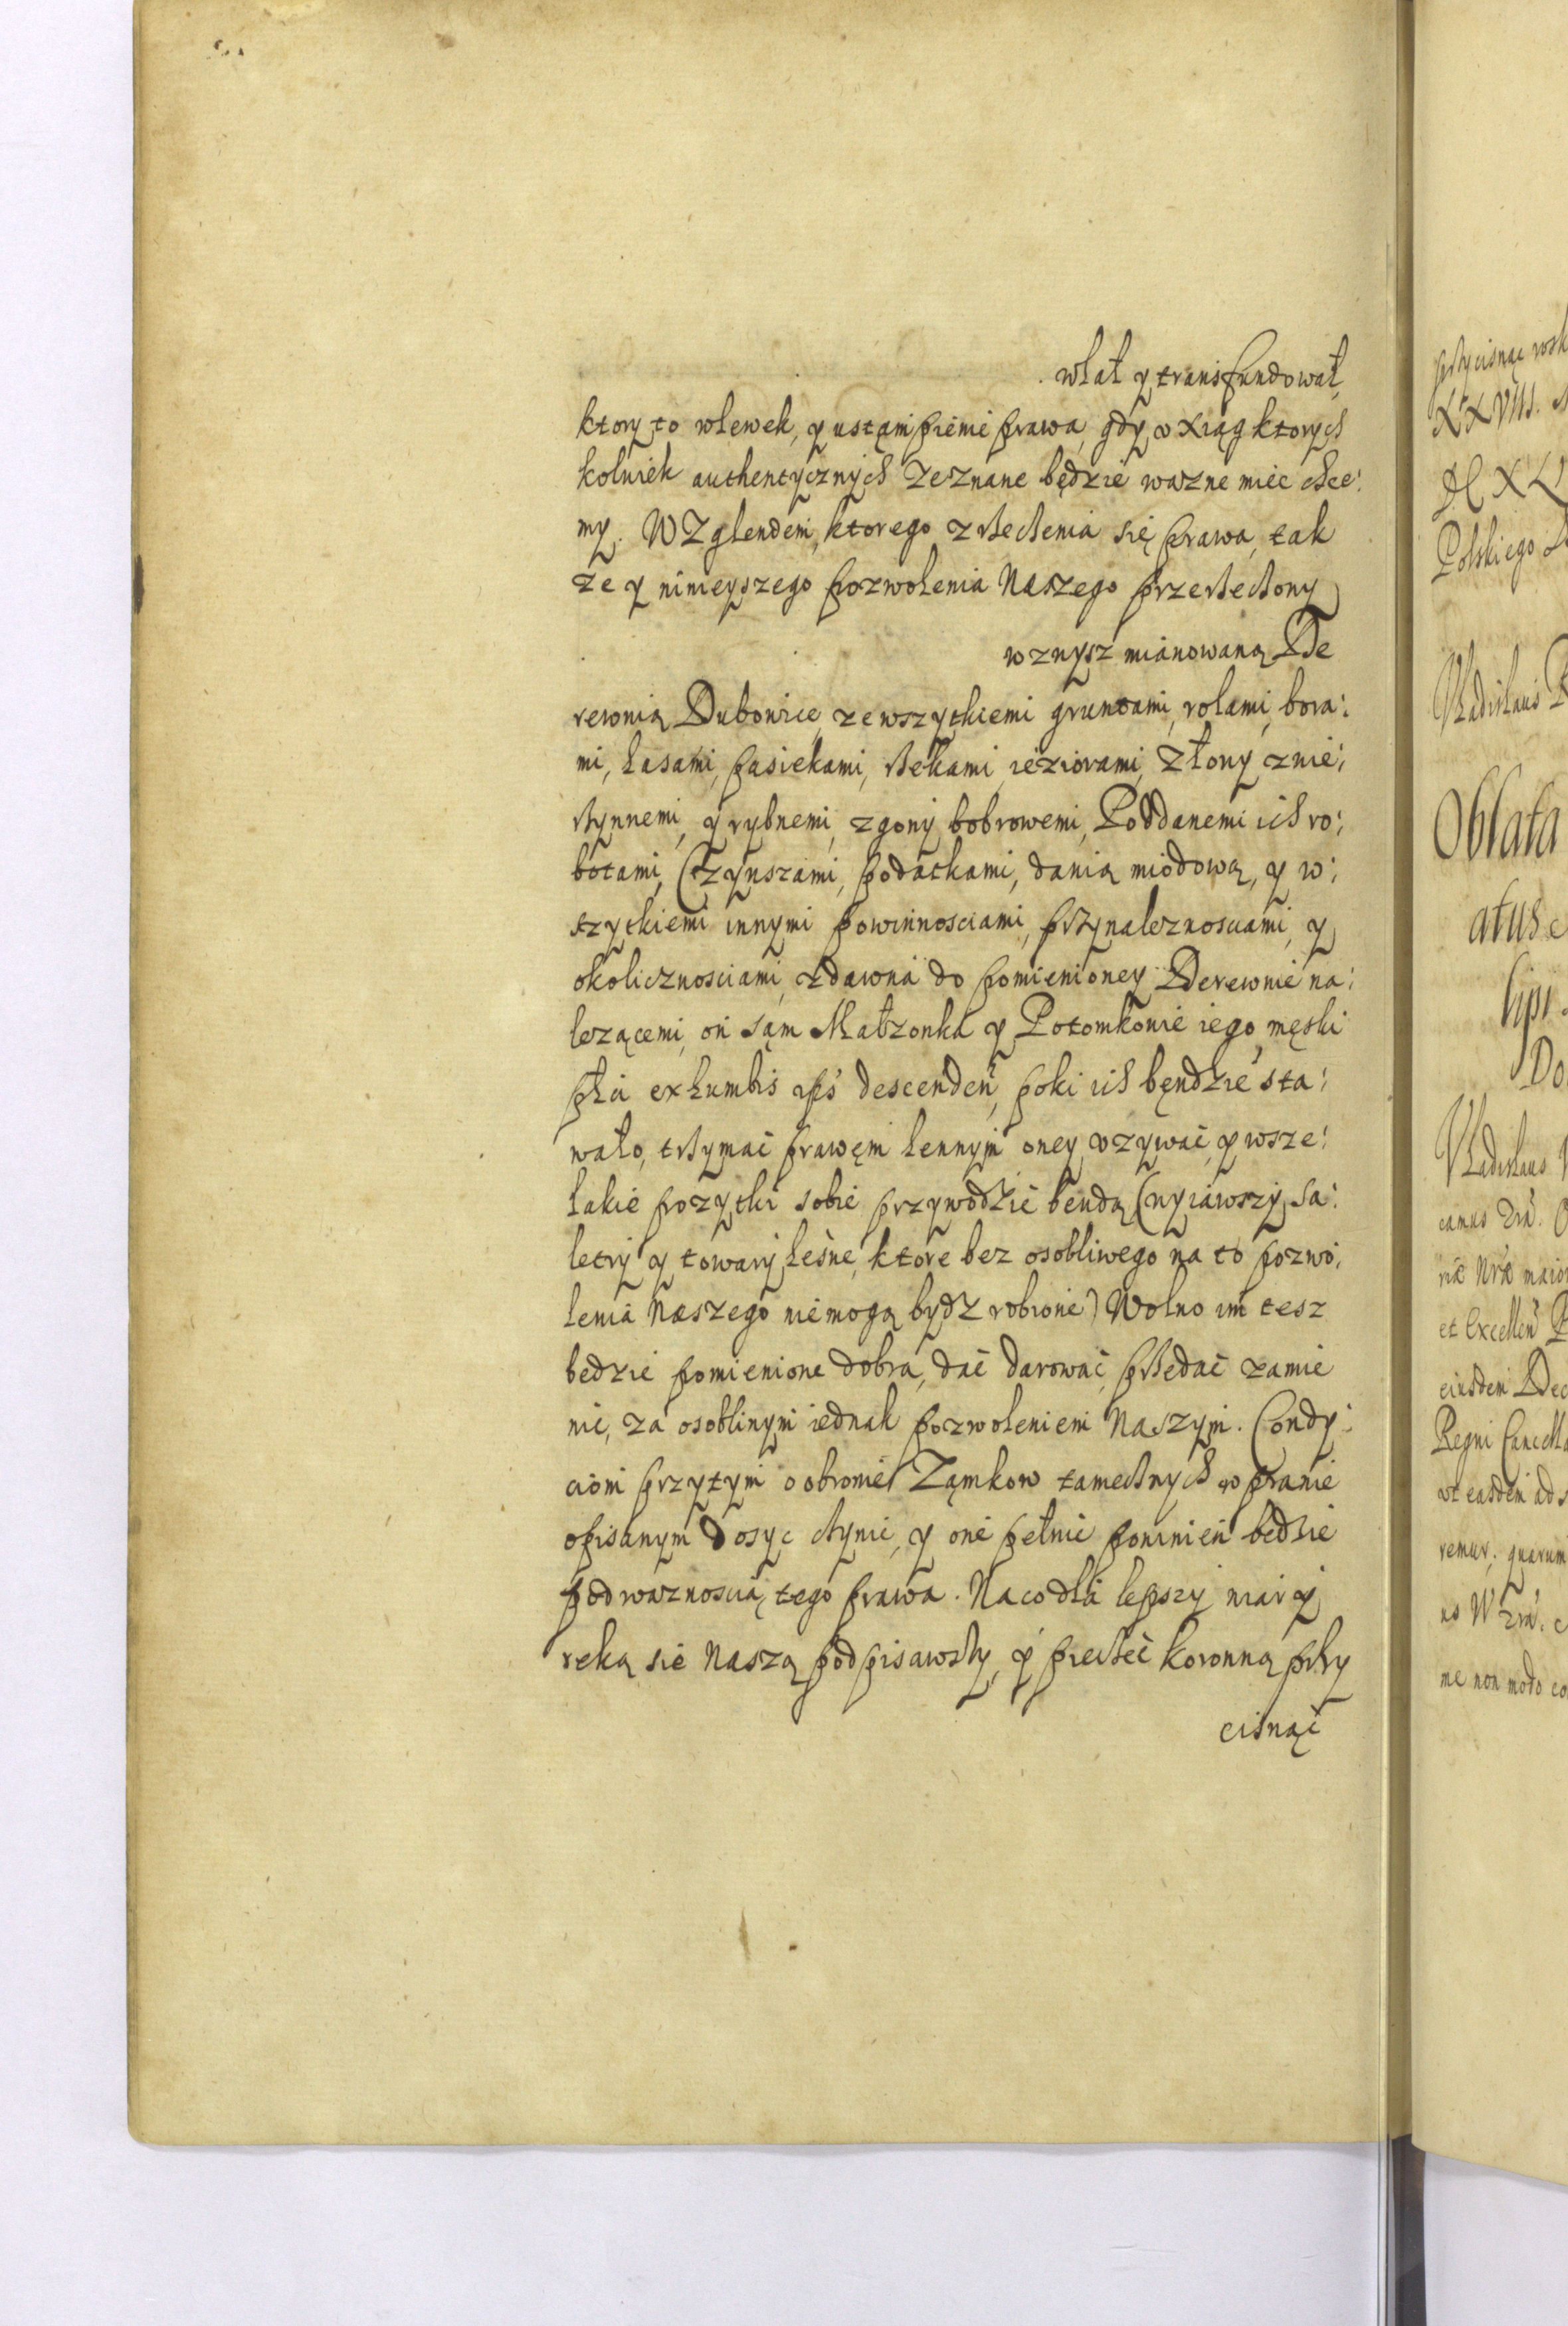 wlał y transfundował,
ktory to wlewek, y ustąmpienie prawa, gdy w xiąg ktorych
kolwiek authentycznych zeznane będzie wazne miec chce:
my. W Zglendem, ktorego zrzeczenia się Prawa, tak
ze y ninieyszego pozwolenia Naszego przerzeczony
wznysz mianowaną De
rewnią Dubowice, ze wszytkiemi gruntami, rolami, bora:
mi, Lasami, pasiekami, rzekami, ieziorami, Złony, z mie:
rzynnemi, y rybnemi, zgony bobrowemi, Poddanemi ich ro:
botami, Czynszami, podatkami, danią miodową, y w:
szytkiemi innymi powinnosciami, przynaleznosciami, y
okolicznosciami, zdawna do pomienioney Derewnie na:
lezącemi, on sąm Małzonka y Potomkowie iego męski
płci ex Lumbis ips descenden, poki ich będzie sta:
wało, trzymać prawem Lennym oney vzywać, y wsze:
lakie pozytki sobie przywodzić bendą (wyiąwszy Sa:
letry y towary Leśne, ktore bez osobliwego na to pozwo:
lenia Naszego nie mogą bydz robione) Wolno im tesz
bedzie pomienione dobra, dać darować, przedać zamie
nic, za osobliwym iednak pozwoleniem Naszym. Condy:
ciom przytym o obronie Zamkow tamecznych w prawie
opisanym dosyc czynic, y one pełnic powinien bedzie
pod waznoscią tego prawa. Na co dla lepszy wiary
reką sie Naszą podpisawszy, y pieczec koronną przy
cisnąć
przycisnąc rosk
XXVIII.
Polskiego
Vladislaus
Oblata
atus
Do
Vladislaus
camus
riæ Nræ maior
et Excellen
eiusdem Dec
Regni Cancella
vt easdem ad s
remur, quarum
me non modo co